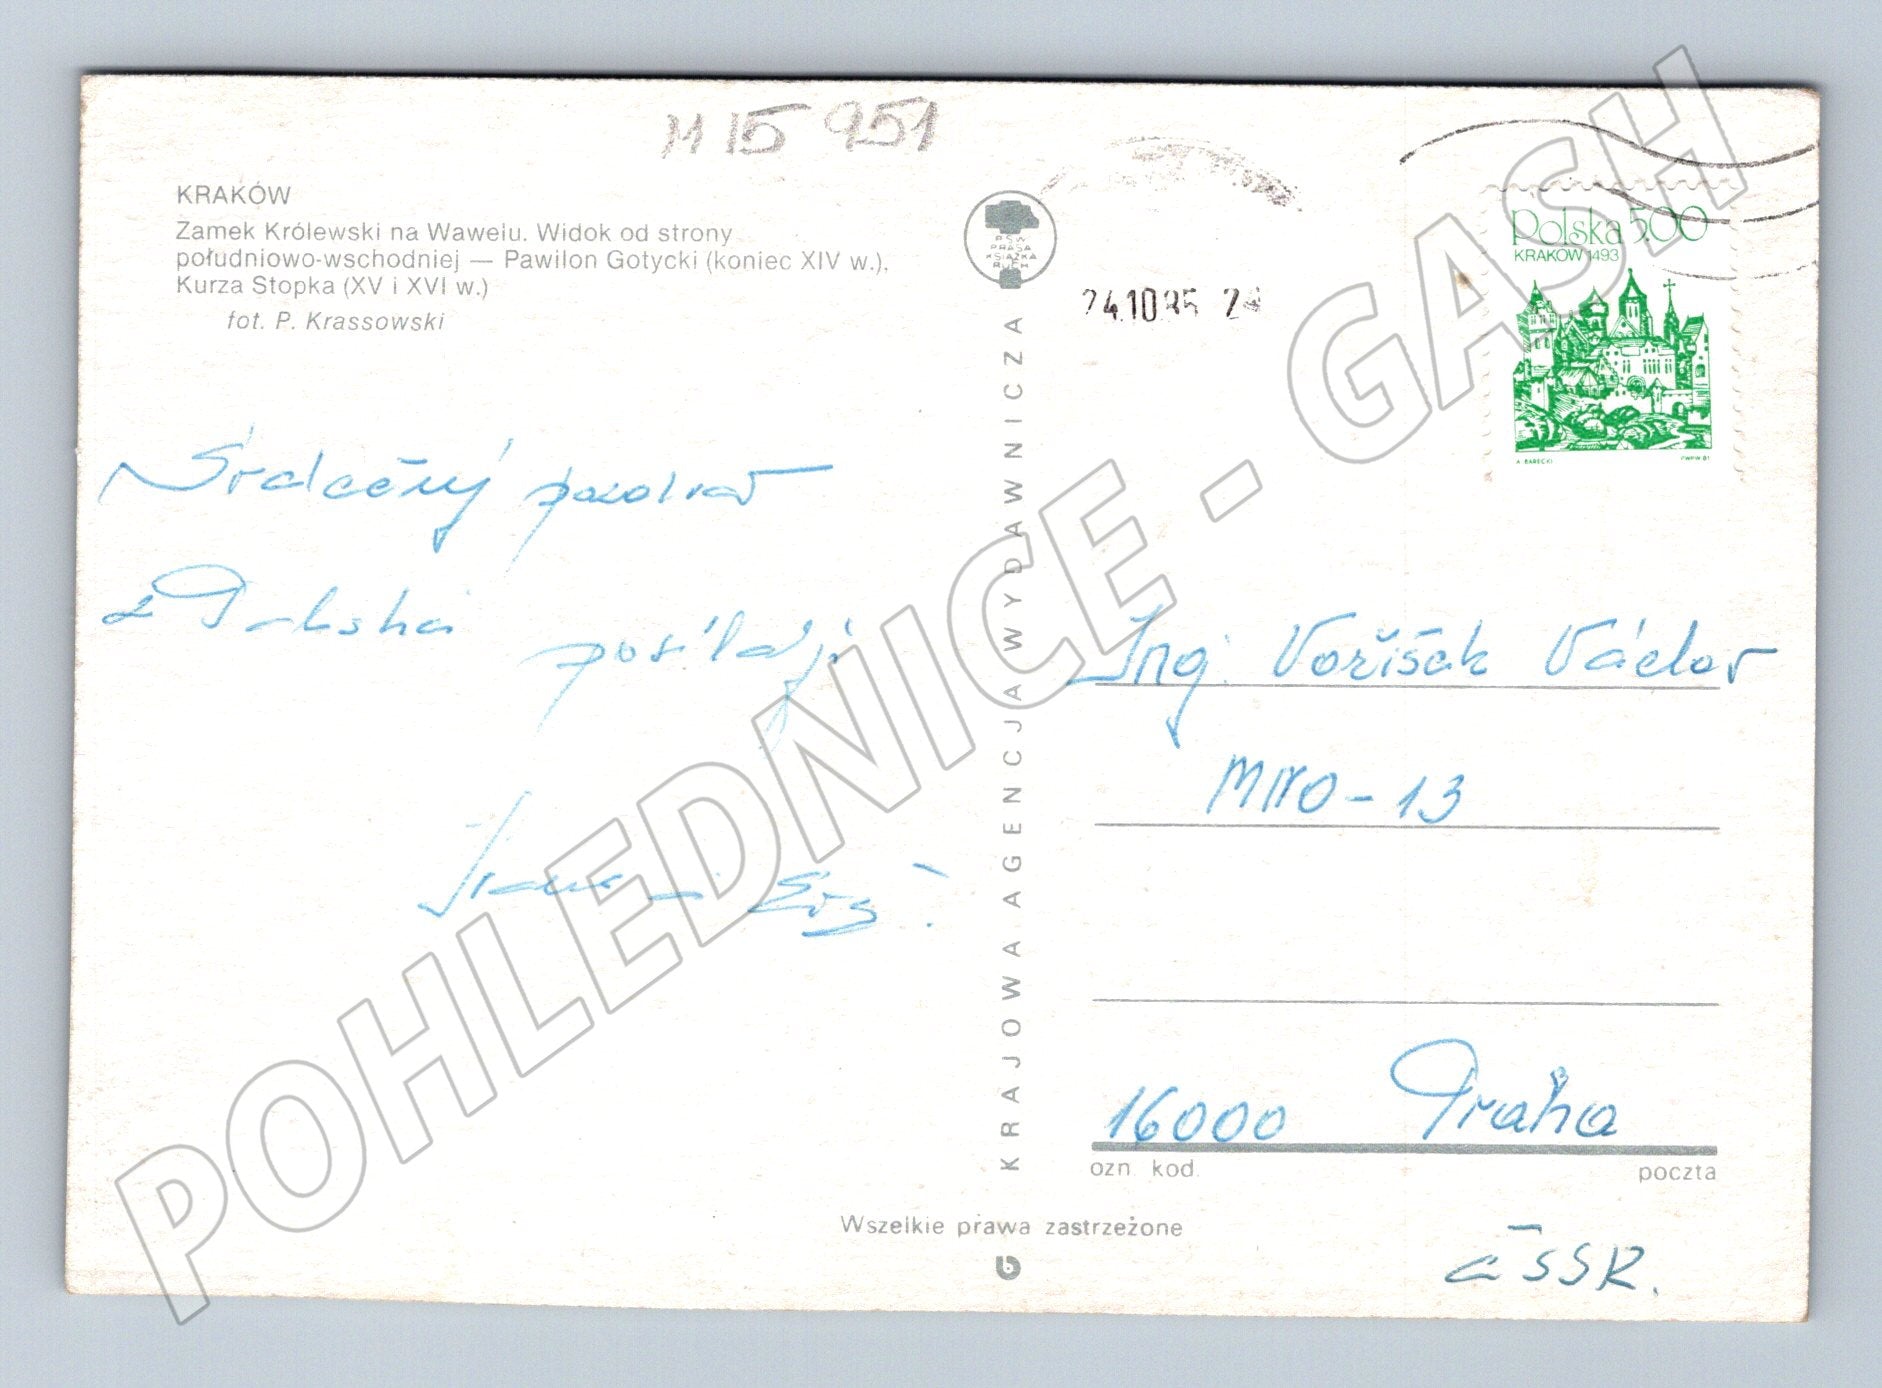 M 15 951
KRAKÓW
Zamek Królewski na Wawelu. Widok od strony
południowo-wschodniej — Pawilon Gotycki (koniec XIV w.),
Kurza Stopka (XV i XVI w.)
fot. P. Krassowski
Srdečný pozdrav
z Polska
posílají
RSW
PRASA
KSIĄŻKA
RUCH
KRAJOWA AGENCJA WYDAWNICZA
24.10.85
Polska 5.00
KRAKÓW 1493
A. BARECKI
PWPW 81
Ing. Voříšek Václav
MNO - 13
16000 Praha
ozn. kod. poczta
ČSSR.
Wszelkie prawa zastrzeżone
POHLEDNICE - GASH